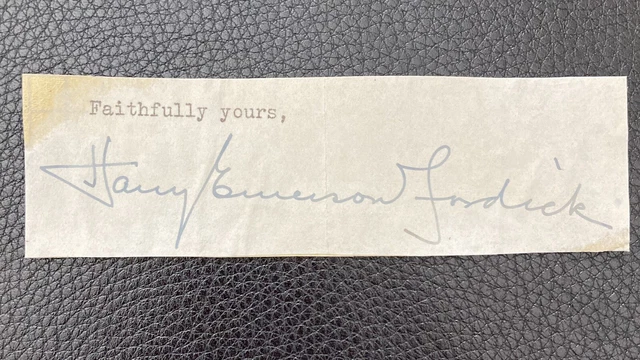 Faithfully yours,
Harry Emerson Fosdick